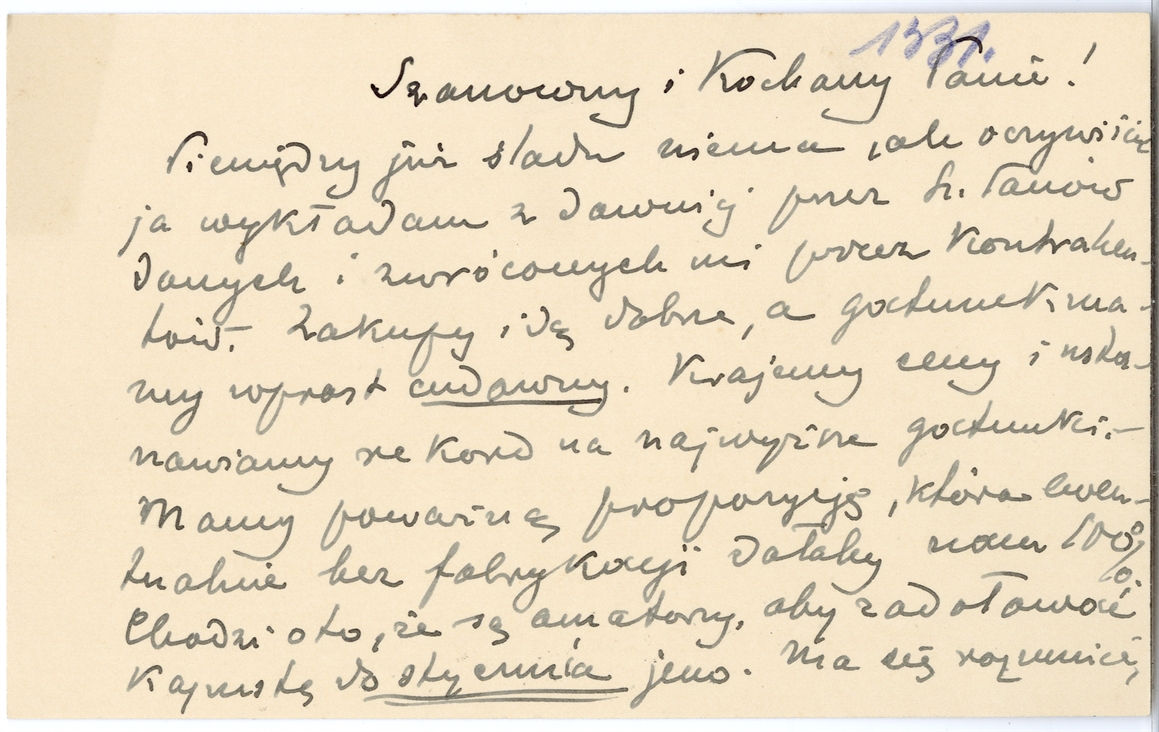 1931.
Szanowny i Kochany Panie!
Pieniędzy już śladu niema, ale oczywiście
ja wykładam z dawniej przez Sz. Panów
danych i zwróconych mi przez Kontrahen-
tów. Zakupy idą dobrze, a gatunek ma-
my wprost cudowny. Krajemy ceny i usta-
nawiamy rekord na najwyższe gatunki.-
Mamy poważną propozycję, która ewen-
tualnie bez fabrykacji dałaby nam 100%
Chodzi oto, że są amatorzy, aby zadołować
Kapustę do stycznia jeno. Ma się rozumieć,